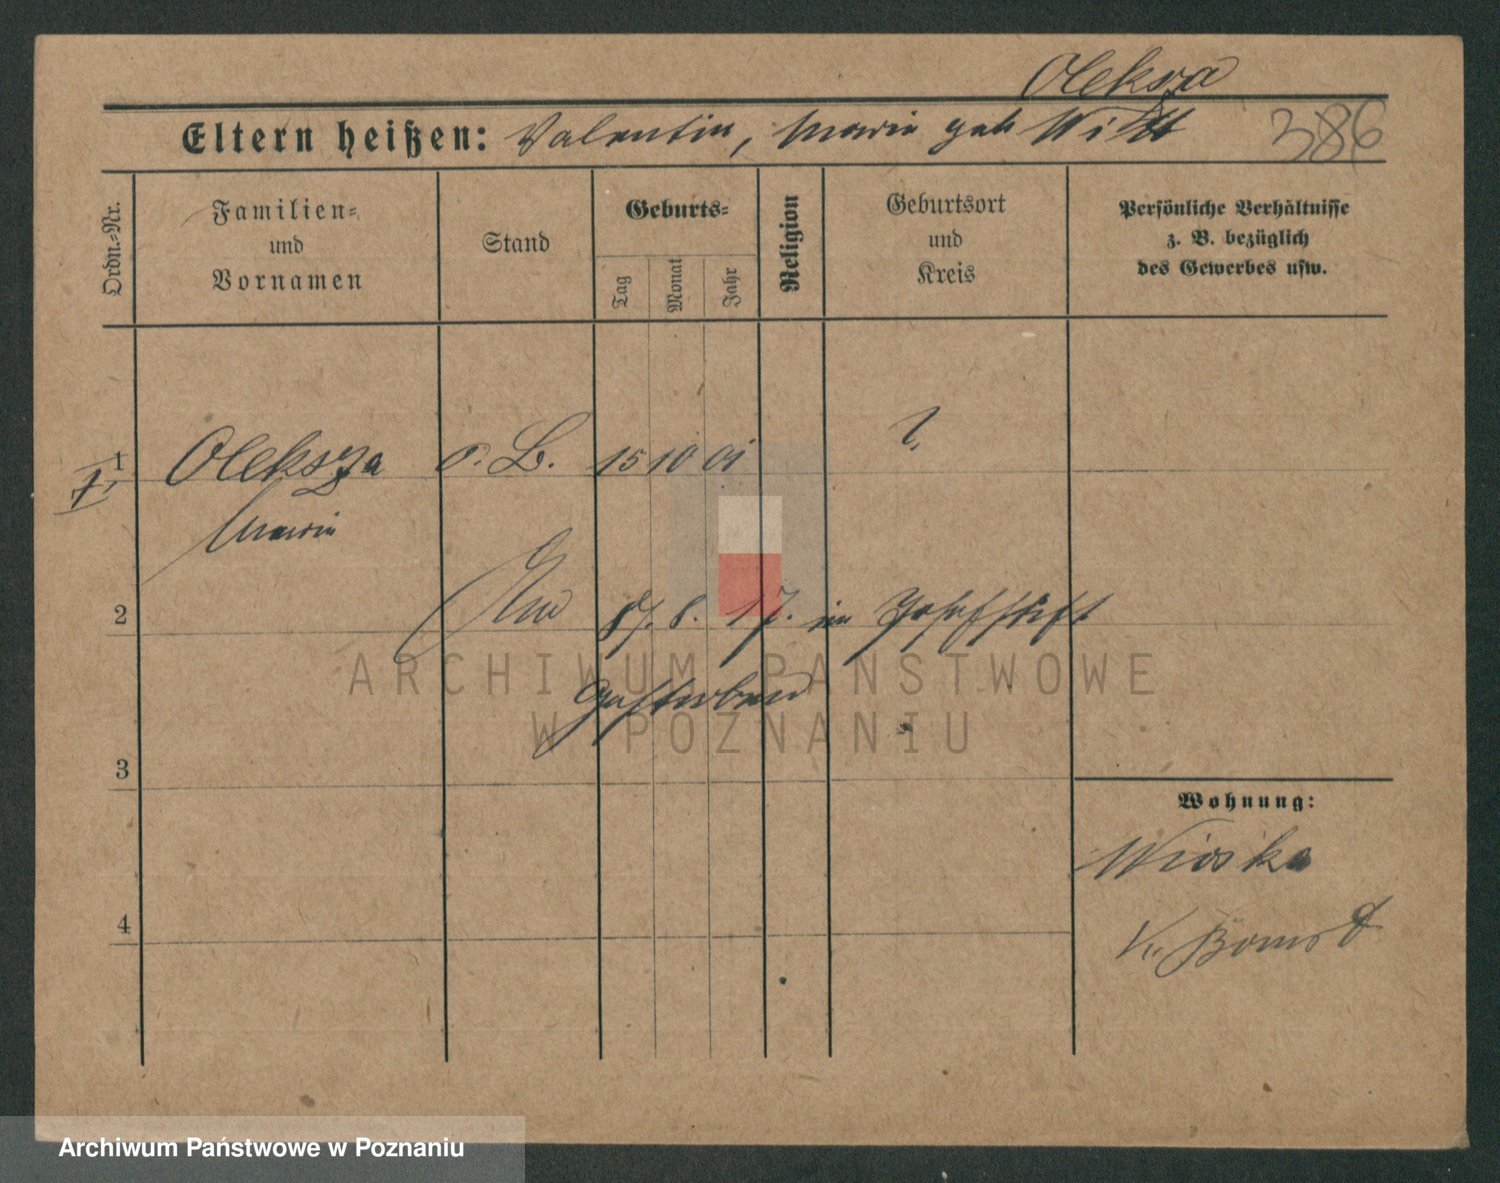 Oleksza
Eltern heißen: Valentin, Marie geb Witt 386
Ordn.-Nr.
Familien-
und
Vornamen
Stand
Geburts-
Tag
Monat
Jahr
Religion
Geburtsort
und
Kreis
Persönliche Verhältnisse
z. B. bezüglich
des Gewerbes usw.
1 Oleksza o. B. 15 10 01 ?
Marie
2 8. 17. in Josefstift
gestorben
3
Wohnung:
Wioska
4
Kr. Bomst
ARCHIWUM PAŃSTWOWE
W POZNANIU
Archiwum Państwowe w Poznaniu